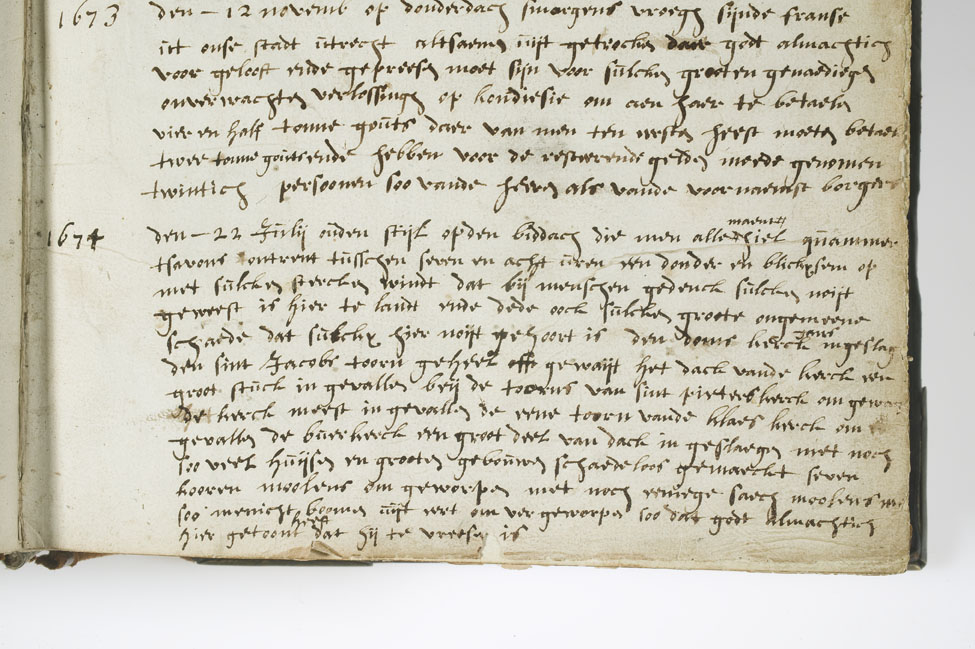 1673 den - 12 novemb op donderdach smorgens vroegh sijnde franse
uit onse stadt uitrecht altsaemen uijt getrocken daer godt almachtich
voor gelooft ende gepreesen moet sijn voor sulcken grooten genaediegen
onverwachten verlossingen op kondiesie om aen haer te betaelen
vier en half tonne gouts daer van men ten eersten heeft moeten betael
twee tonne gouts ende hebben voor de resteerende gelden meede genomen
twintich persoonen soo vande heeren als vande voornaemst borgers
maents
1674 den - 22 Julij ouden stijl op den biddach die men alle hiel quammer
tsavons ontrent tusschen seven en acht uren een donder en blicksem op
met sulcken stercken windt dat bij menschen gedenck sulcken noijt
geweest is hier te landt ende dede oock sulcken groote ongemeene
schaede dat sulckx hier noijt gehoort is den doms kerck ingeslag
den sint Jacobs toorn geheel off gewaijt het dack vande kerck een
groot stuck in gevallen beij de toorns van sint pieters kerck om gewaij
de kerck meest in gevallen de eene toorn vande klaes kerck om
gevallen de buerkerck een groot deel van dack in geslaegen met noch
soo veel huijsen en grooten gebouwen schaedeloos gemaeckt seven
kooren moolens om geworpen met noch eeniege saech moolens
soo menicht boomen uijt eert om ver geworpen soo dat godt almachtich
hier getoont heeft dat hij te vreesen is